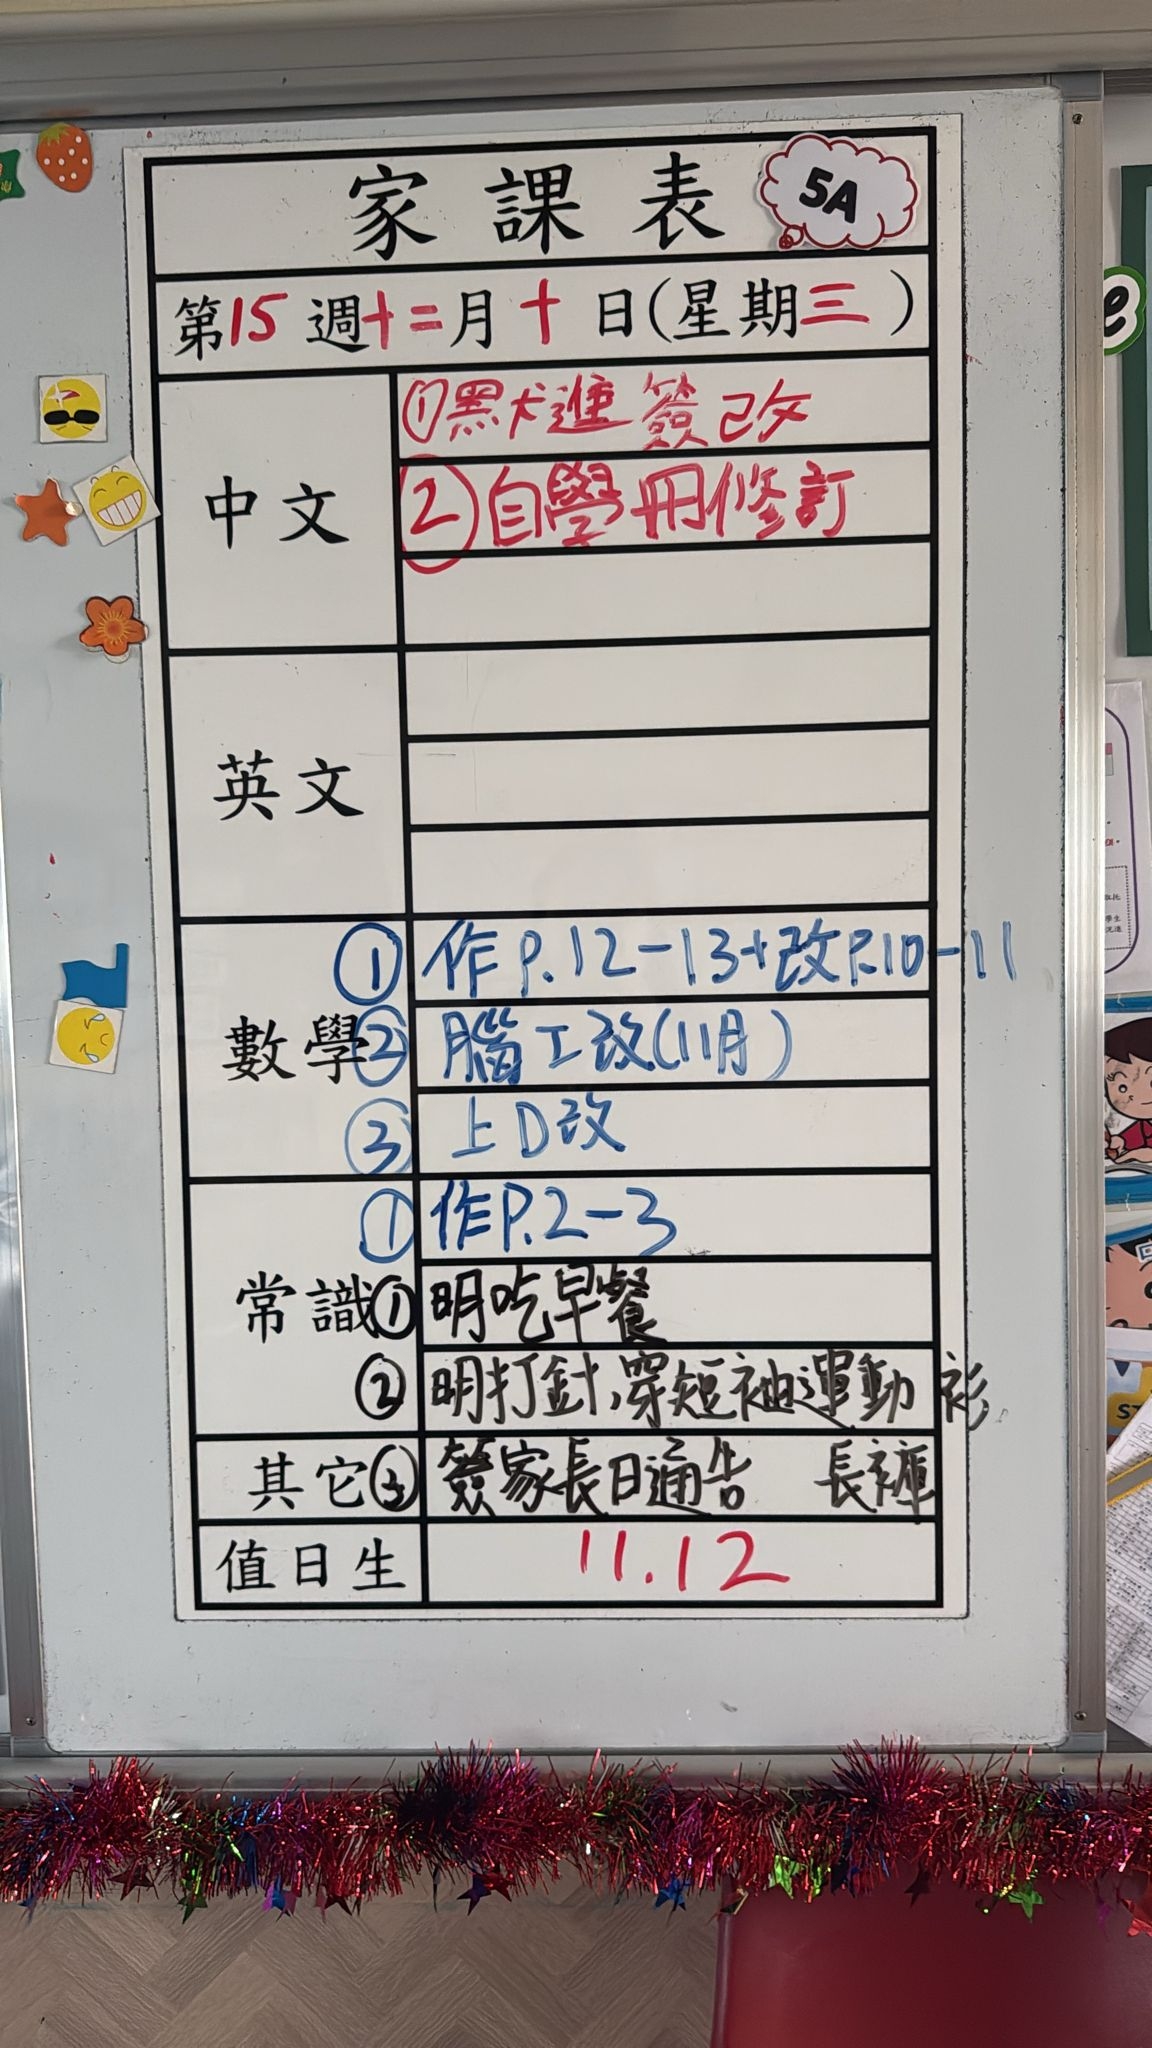 家課表
5A
第15週十二月十日(星期三)
中文
①黑犬進簽改
②自學冊修訂
英文
數學
① 作P.12-13+改P.10-11
② 腦工改(11月)
③ 上D改
常識
① 作P.2-3
① 明吃早餐
② 明打針,穿短袖運動衫
長褲
其它
③ 簽家長日通告
值日生
11.12